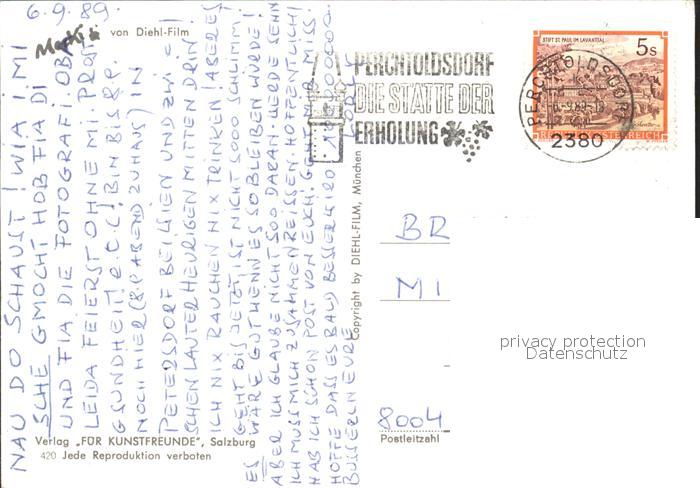 6.9.89.
von Diehl-Film
NAU DO SCHAUST! WIA I MI
SCHE GMOCHT HOB FIA DI
UND FIA DIE FOTOGRAFI. OBA
LEIDA FEIERST OHNE MI! PROST
GSUNDHEIT! e.c.c! BIN BIS 8.P.
NOCH HIER (8.P ABEND ZUHAUS) IN
PETERSDORF BEI WIEN UND ZWI
SCHEN LAUTER HEURIGEN MITTEN DRIN
ICH NIX RAUCHEN NIX TRINKEN! ABER ES
GEHT BIS JETZT IST NICHT SOOO SCHLIMM!
ES WÄRE GUT WENN ES SO BLEIBEN WÜRDE!
ABER ICH GLAUBE NICHT SOO DARAN. WERDE SEHN
ICH MUSS MICH ZUSAMMENREISSEN. HOFFENTLICH!
HAB ICH SCHON POST VON EUCH. GEHT MIR MISS.
HOFFE DASS ES BALD BESSER WIRD
BUSSERLN EURE
Verlag „FÜR KUNSTFREUNDE", Salzburg
420 Jede Reproduktion verboten
Copyright by DIEHL-FILM, München
PERCHTOLDSDORF
DIE STÄTTE DER
ERHOLUNG
STIFT ST. PAUL IM LAVANTTAL
5s
REPUBLIK ÖSTERREICH
PERCHTOLDSDORF
-6.-9.89-
2380
BR
MI
8004
Postleitzahl
privacy protection
Datenschutz